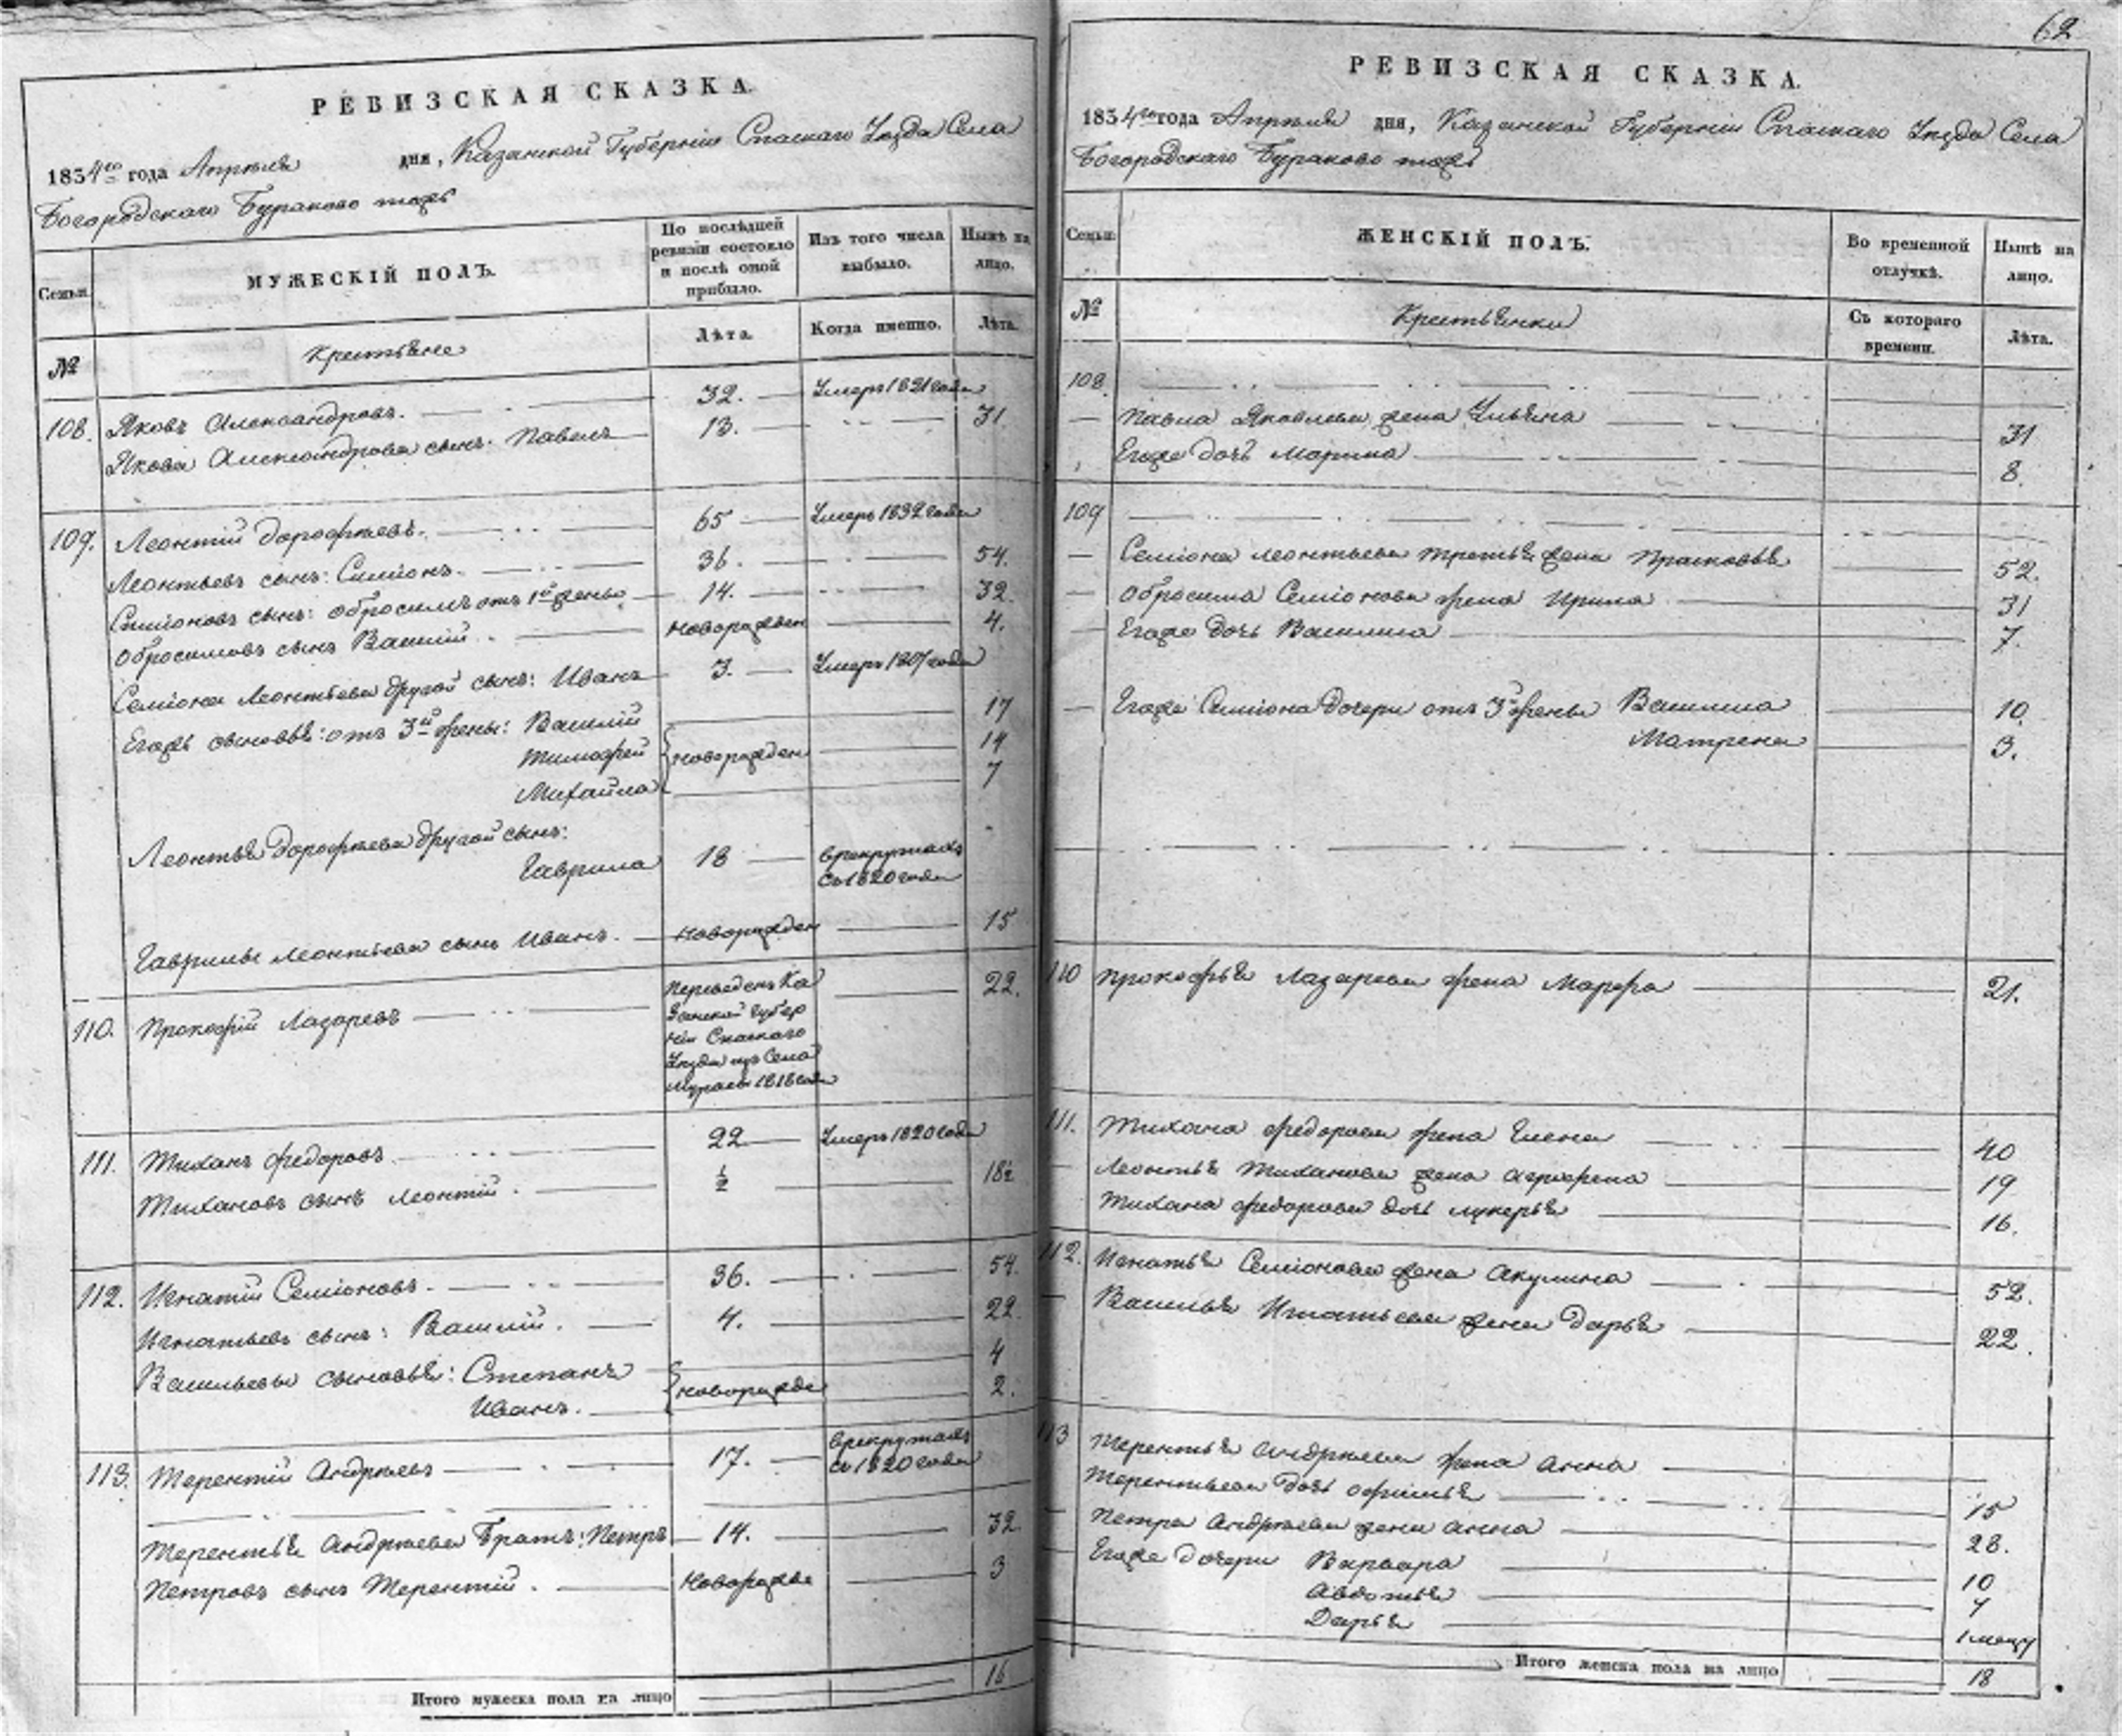 62
РЕВИЗСКАЯ СКАЗКА.
1834го года Апреля дня, Казанской Губернiи Спаскаго Уезда Села
Богородскаго Бураково тожъ
Семьи.
МУЖЕСКIЙ ПОЛЪ.
По послѣдней ревизiи состояло и послѣ оной прибыло.
Изъ того числа выбыло.
Нынѣ на лицо.
№
Крестьяне
Лѣта.
Когда именно.
Лѣта.
108. Яковъ Александровъ. 32. Умеръ 1821 года
Якова Александрова сынъ: Павелъ 13. 31
109. Леонтiй Дорофѣевъ. 65 Умеръ 1832 года
Леонтьевъ сынъ: Симiонъ. 36. 54.
Симiоновъ сынъ: Обросимъ отъ 1й жены 14. 32.
Обросимовъ сынъ Василiй. новорожден 4.
Семiона Леонтьева другой сынъ: Иванъ 3. Умеръ 1807 года
Егожъ сыновья: отъ 3й жены: Василiй 17
Тимофей новорожден 14
Михайла 7
Леонтья Дорофѣева другой сынъ:
Гаврила 18 врекрутахъ
съ 1820 года
Гаврилы Леонтьева сынъ Иванъ. новорожден 15
110. Прокофiй Лазаревъ Переведенъ Ка 22.
занской Губер
нiи Спаскаго
Уезда изъ Села
1818 года
111. Тиханъ Федоровъ 22 Умеръ 1820 года
Тихановъ сынъ Леонтiй. ½ 18½
112. Игнатiй Семiоновъ. 36. 54.
Игнатьевъ сынъ: Василiй. 4. 22.
Васильевы сыновья: Степанъ новорожде 4
Иванъ. 2.
113. Терентiй Андрѣевъ 17. врекрутахъ
съ 1820 года
Терентья Андрѣева Братъ: Петръ 14. 32.
Петровъ сынъ Терентiй. новорожде 3
Итого мужеска пола на лицо 16
РЕВИЗСКАЯ СКАЗКА.
1834го года Апреля дня, Казанской Губернiи Спаскаго Уезда Села
Богородскаго Бураково тожъ
Семьи.
ЖЕНСКIЙ ПОЛЪ.
Во временной отлучкѣ.
Нынѣ на лицо.
№
Крестьянки
Съ котораго времени.
Лѣта.
108
Павла Яковлева жена Ульяна 31
Егоже дочь Марина 8.
109
Семiона Леонтьева третья жена Прасковья 52.
Обросима Семiонова жена Ирина 31
Егоже дочь Василиса 7.
Егоже Семiона дочери отъ 3й жены Василиса 10.
Матрена 3.
110 Прокофья Лазарева жена Марфа 21.
111. Тихана Федорова жена Елена 40
Леонтья Тиханова жена Агрофена 19
Тихана Федорова дочь Лукерья 16.
112. Игнатья Семiонова жена Акулина 52.
Василья Игнатьева жена Дарья 22.
113 Терентья Андрѣева жена Анна
Терентьева дочь Офимья 15
Петра Андрѣева жена Анна 28.
Егоже дочери Варвара 10
Авдотья 7
Дарья 1 месяц
Итого женска пола на лицо 18